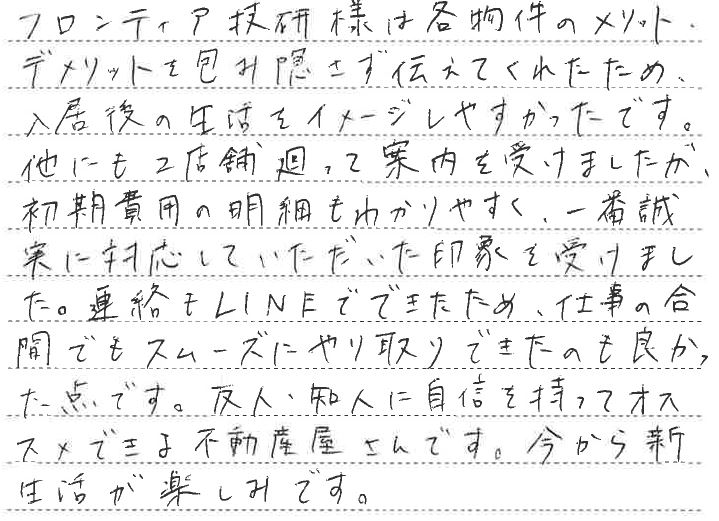 フロンティア技研様は各物件のメリット・
デメリットを包み隠さず伝えてくれたため、
入居後の生活をイメージしやすかったです。
他にも2店舗廻って案内を受けましたが、
初期費用の明細もわかりやすく、一番誠
実に対応していただいた印象を受けまし
た。連絡もLINEでできたため、仕事の合
間でもスムーズにやり取りできたのも良かっ
た点です。友人・知人に自信を持ってオス
スメできる不動産屋さんです。今から新
生活が楽しみです。